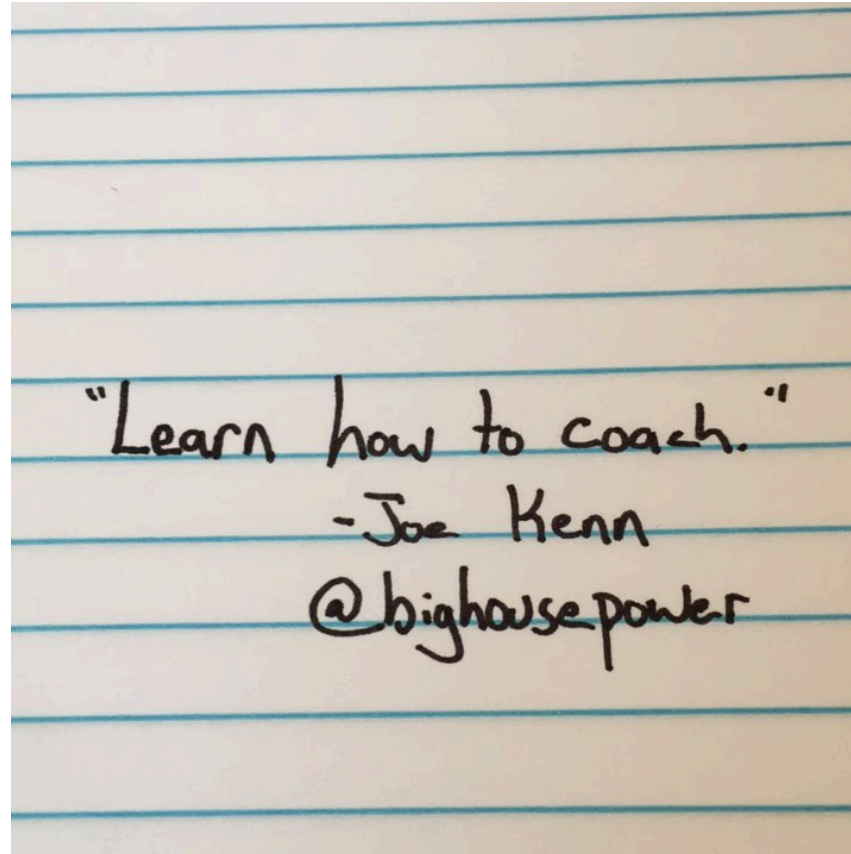 "Learn how to coach."
-Joe Kenn
@bighousepower